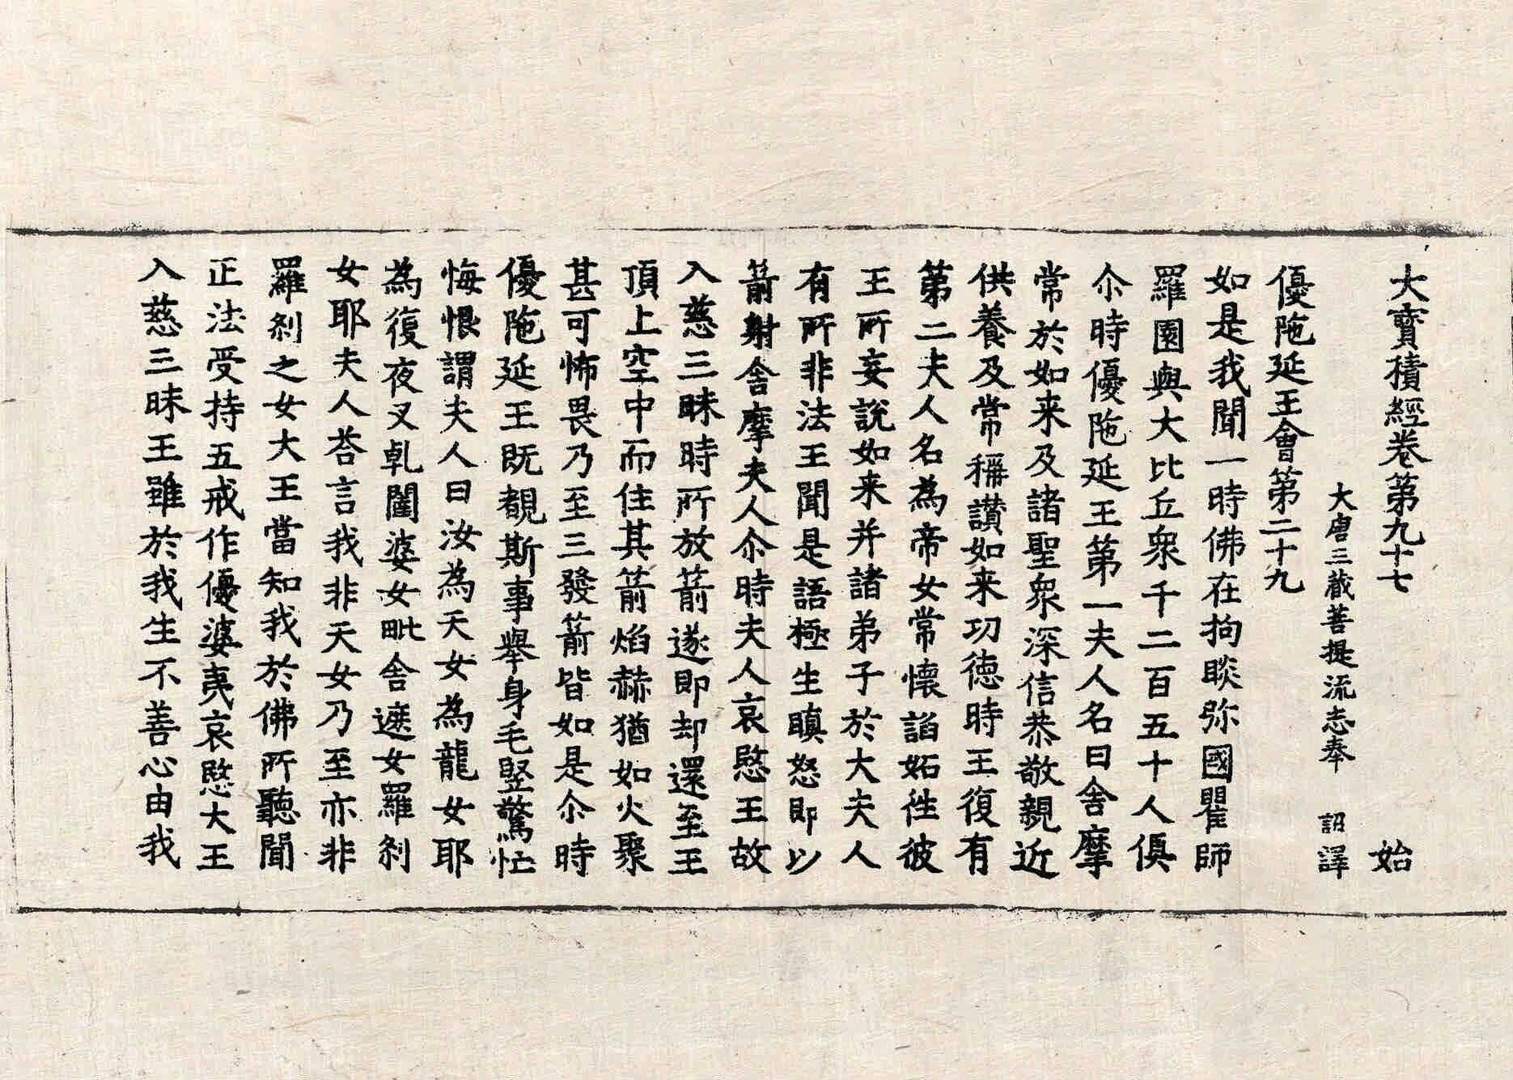 大寶積經卷第九十七 始
大唐三藏菩提流志奉 詔譯
優陁延王會第二十九
如是我聞一時佛在拘睒弥國瞿師
羅園與大比丘衆千二百五十人俱
尒時優陁延王第一夫人名曰舍摩
常於如来及諸聖衆深信恭敬親近
供養及常稱讃如来功德時王復有
第二夫人名為帝女常懷諂妬徃彼
王所妄說如来并諸弟子於大夫人
有所非法王聞是語極生瞋怒即以
箭射舍摩夫人尒時夫人哀愍王故
入慈三昧時所放箭遂即却還至王
頂上空中而住其箭焰赫猶如火聚
甚可怖畏乃至三發箭皆如是尒時
優陁延王既覩斯事舉身毛竪驚忙
悔恨謂夫人曰汝為天女為龍女耶
為復夜叉乹闥婆女毗舍遮女羅剎
女耶夫人荅言我非天女乃至亦非
羅剎之女大王當知我於佛所聽聞
正法受持五戒作優婆夷哀愍大王
入慈三昧王雖於我生不善心由我